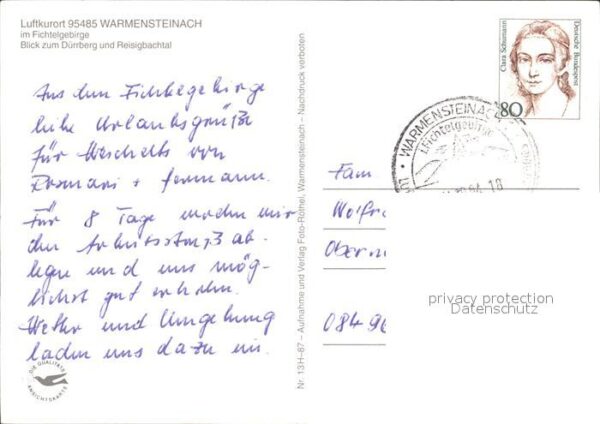 Luftkurort 95485 WARMENSTEINACH
im Fichtelgebirge
Blick zum Dürrberg und Reisigbachtal
Aus dem Fichtelgebirge
liebe Urlaubsgrüße
für von
Rosmari + Hermann.
Für 8 Tage wollen wir
den Arbeitsstreß ab-
legen und uns mög-
lichst gut erholen.
Wetter und Umgebung
laden uns dazu ein.
DIE QUALITÄTS
ANSICHTSKARTE
Nr. 13H-87 – Aufnahme und Verlag Foto-Röthel, Warmensteinach – Nachdruck verboten
Clara Schumann
Deutsche Bundespost
80
WARMENSTEINACH
i. Fichtelgebirge
94.18
Fam
Wolfr
Ober
084 96
privacy protection
Datenschutz